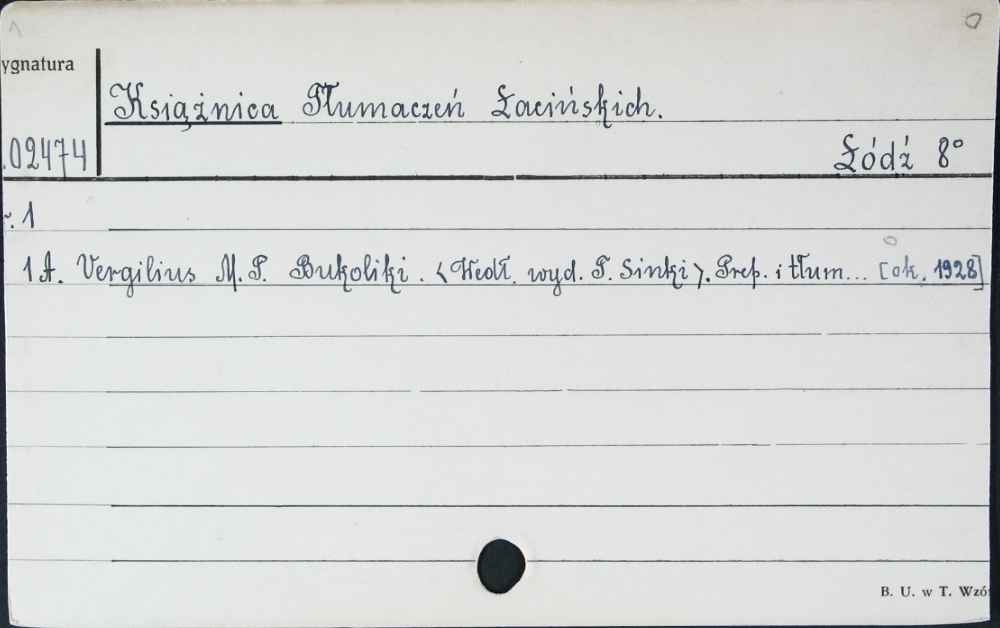 ygnatura
Książnica Tłumaczeń Łacińskich.
02474
Łódź 8°
r. 1
1A. Vergilius M. P. Bukoliki. <Wedł. wyd. T. Sinki>. Prep. i tłum... [ok. 1928]
B. U. w T. Wzó